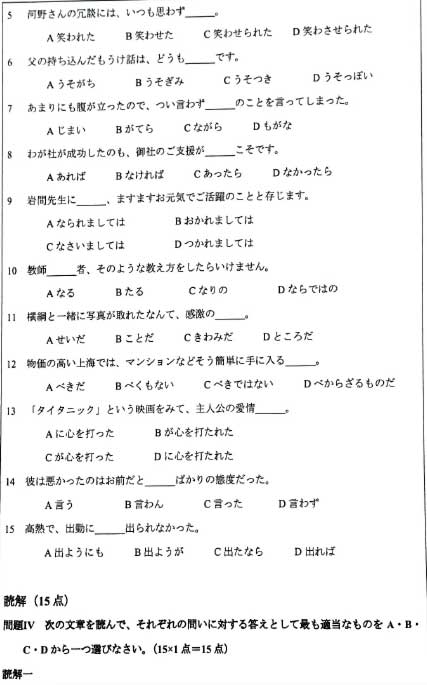 5 河野さんの冗談には、いつも思わず______。
A 笑われた B 笑わせた C 笑わせられた D 笑わさせられた
6 父の持ち込んだもうけ話は、どうも______です。
A うそがち B うそぎみ C うそつき D うそっぽい
7 あまりにも腹が立ったので、つい言わず______のことを言ってしまった。
A じまい B がてら C ながら D もがな
8 わが社が成功したのも、御社のご支援が______こそです。
A あれば B なければ C あったら D なかったら
9 岩間先生に______、ますますお元気でご活躍のことと存じます。
A なられましては B おかれましては
C なさいましては D つかれましては
10 教師______者、そのような教え方をしたらいけません。
A なる B たる C なりの D ならではの
11 横綱と一緒に写真が取れたなんて、感激の______。
A せいだ B ことだ C きわみだ D ところだ
12 物価の高い上海では、マンションなどそう簡単に手に入る______。
A べきだ B べくもない C べきではない D べからざるものだ
13 「タイタニック」という映画をみて、主人公の愛情______。
A に心を打った B が心を打たれた
C が心を打った D に心を打たれた
14 彼は悪かったのはお前だと______ばかりの態度だった。
A 言う B 言わん C 言った D 言わず
15 高熱で、出勤に______出られなかった。
A 出ようにも B 出ようが C 出たなら D 出れば
読解（15 点）
問題IV 次の文章を読んで、それぞれの問いに対する答えとして最も適当なものを A・B・
C・D から一つ選びなさい。（15×1 点＝15 点）
読解一